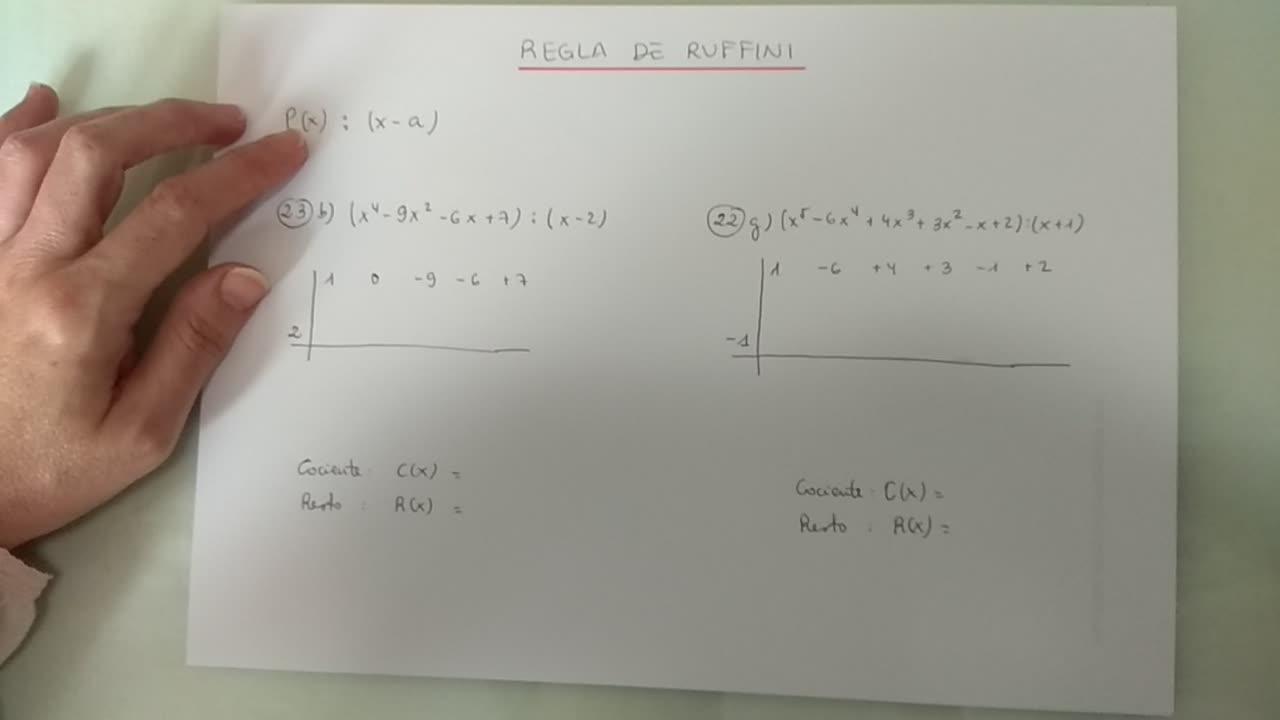 REGLA DE RUFFINI
P(x) : (x-a)
23 b) (x⁴ - 9x² - 6x + 7) : (x-2)
1 0 -9 -6 +7
2
Cociente: C(x) =
Resto : R(x) =
22 g) (x⁵ - 6x⁴ + 4x³ + 3x² - x + 2) : (x+1)
1 -6 +4 +3 -1 +2
-1
Cociente: C(x) =
Resto : R(x) =